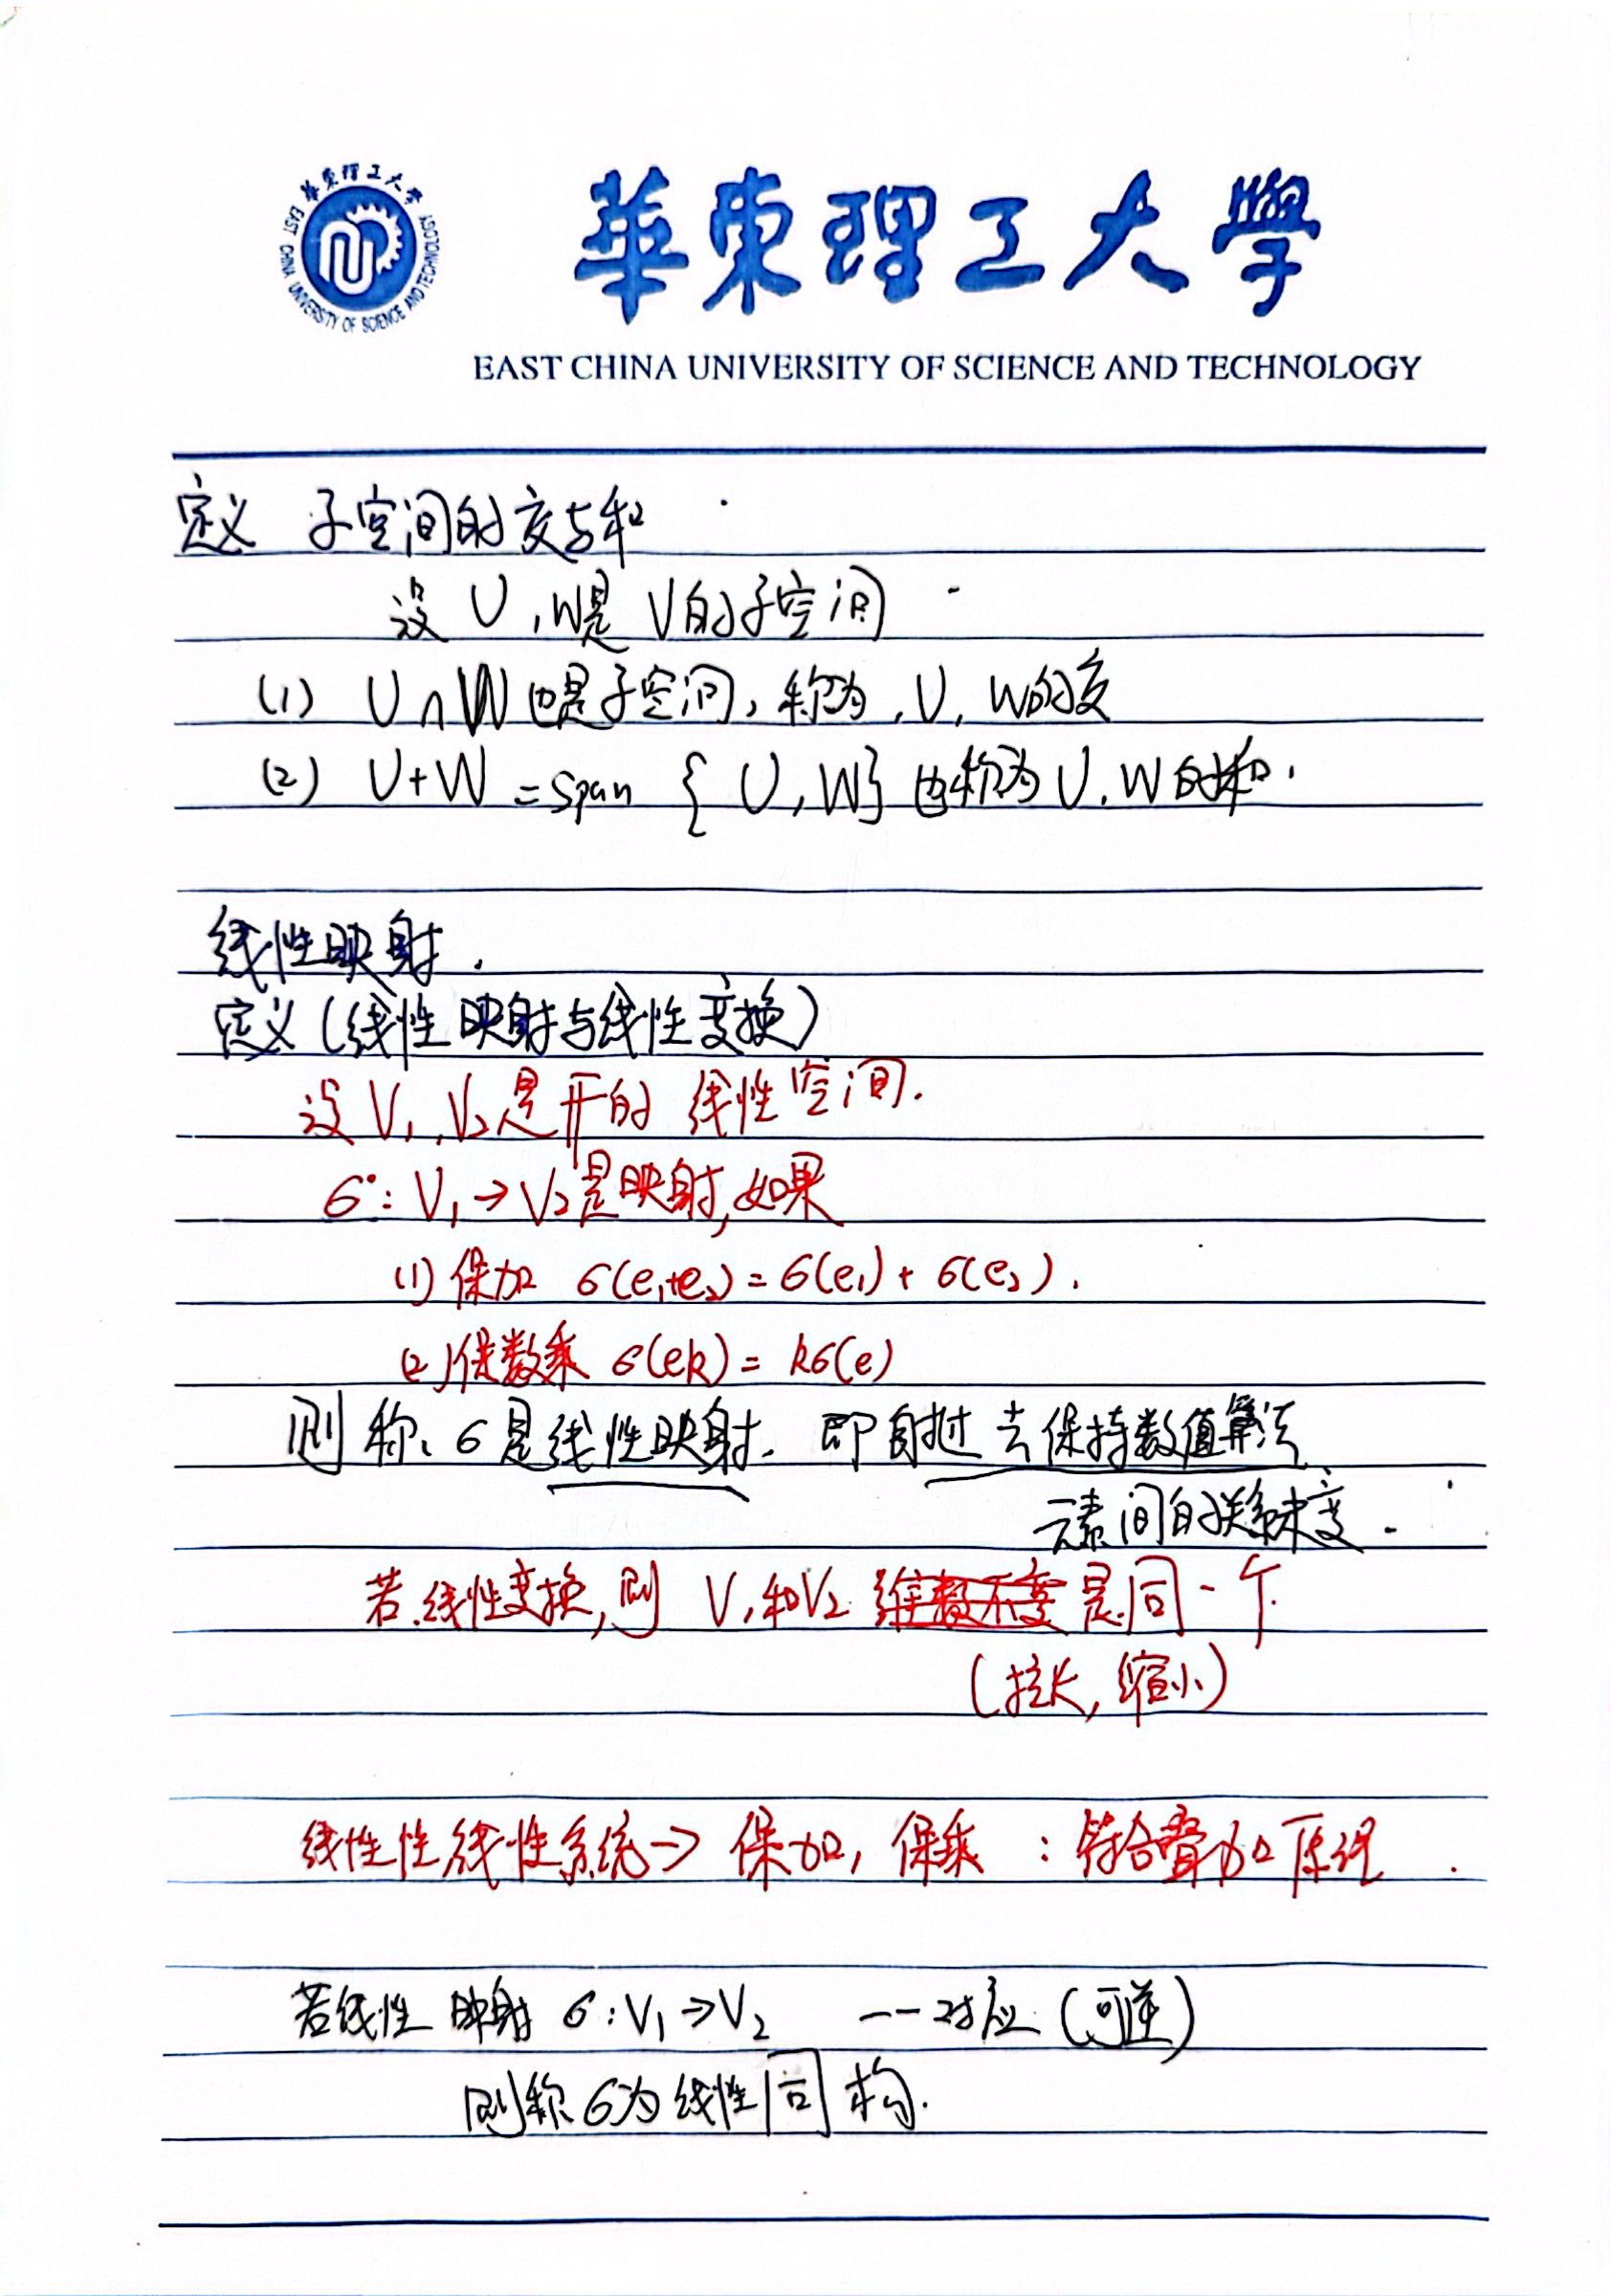 華東理工大學
EAST CHINA UNIVERSITY OF SCIENCE AND TECHNOLOGY
華東理工大學
EAST CHINA UNIVERSITY OF SCIENCE AND TECHNOLOGY
定义 子空间的交与和
设 U,W是 V的子空间
(1) U∩W 也是子空间,称为,U,W的交
(2) U+W =span {U,W} 也称为U.W的和.
线性映射.
定义(线性映射与线性变换)
设V₁,V₂是F的 线性空间.
σ:V₁→V₂是映射,如果
(1)保加 σ(e₁+e₂)=σ(e₁)+σ(e₂).
(2)保数乘 σ(ek)=kσ(e)
则称、σ是线性映射. 即射过去保持数值算法
元素间的关系未变.
若线性变换,则 V₁和V₂ 维数不变 是同一个.
(拉长,缩小)
线性性线性系统→ 保加,保乘 :符合叠加原理.
若线性映射 σ:V₁→V₂ 一一对应(可逆)
则称σ为线性同构.